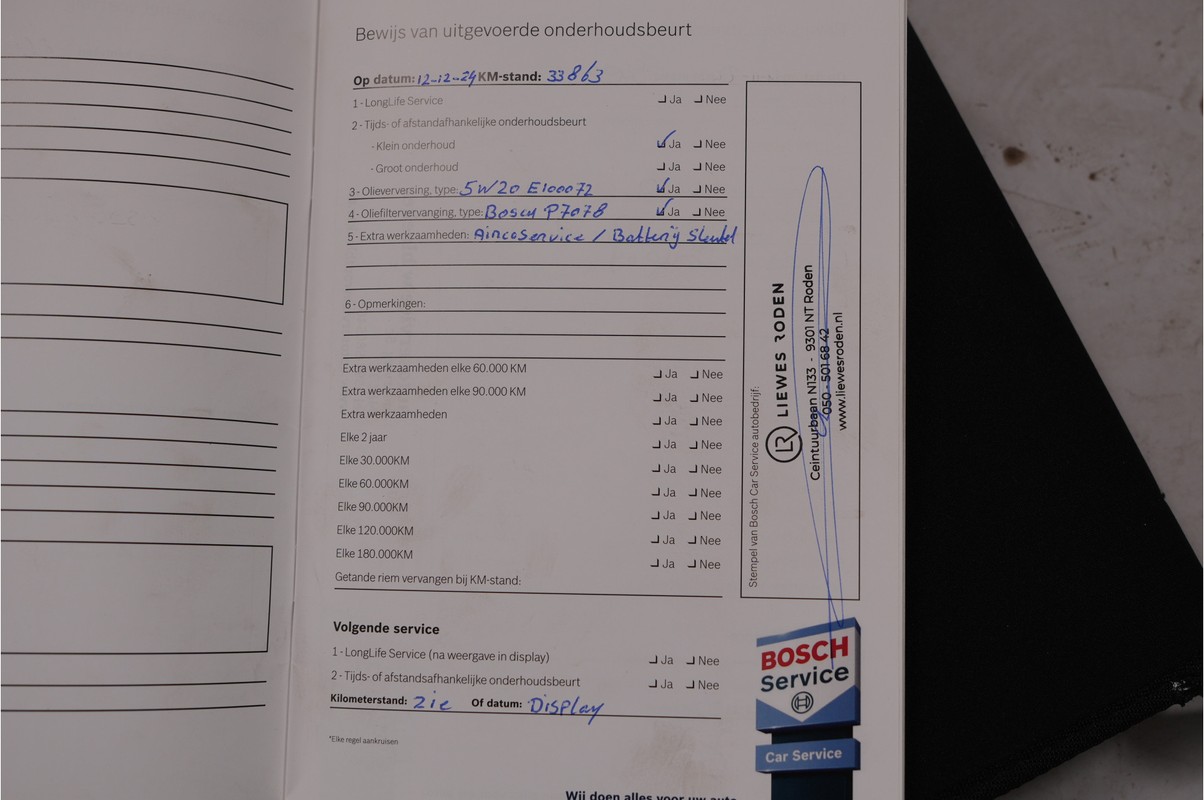 Bewijs van uitgevoerde onderhoudsbeurt
Op datum: 12-12-24 KM-stand: 33863
1 - LongLife Service Ja Nee
2 - Tijds- of afstandafhankelijke onderhoudsbeurt
- Klein onderhoud Ja Nee
- Groot onderhoud Ja Nee
3 - Olieverversing, type: 5W20 E100072 Ja Nee
4 - Oliefiltervervanging, type: Bosch P7078 Ja Nee
5 - Extra werkzaamheden: Aircoservice / Batterij Sleutel
6 - Opmerkingen:
Extra werkzaamheden elke 60.000 KM Ja Nee
Extra werkzaamheden elke 90.000 KM Ja Nee
Extra werkzaamheden Ja Nee
Elke 2 jaar Ja Nee
Elke 30.000KM Ja Nee
Elke 60.000KM Ja Nee
Elke 90.000KM Ja Nee
Elke 120.000KM Ja Nee
Elke 180.000KM Ja Nee
Getande riem vervangen bij KM-stand:
Volgende service
1 - LongLife Service (na weergave in display) Ja Nee
2 - Tijds- of afstandsafhankelijke onderhoudsbeurt Ja Nee
Kilometerstand: zie Of datum: Display
*Elke regel aankruisen
Stempel van Bosch Car Service autobedrijf:
LR LIEWES RODEN
Ceintuurbaan N133 - 9301 NT Roden
050 - 501 68 42
www.liewesroden.nl
BOSCH
Service
Car Service
Wij doen alles voor uw auto